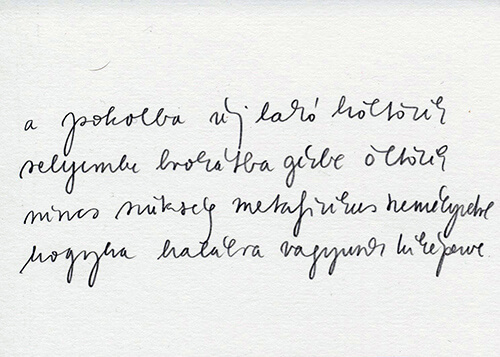 a pokolba új lakó költözik
selyembe brokátba gézbe öltözik
nincs szükség metafizikus személyzetre
hogyha halálra vagyunk kiképezve